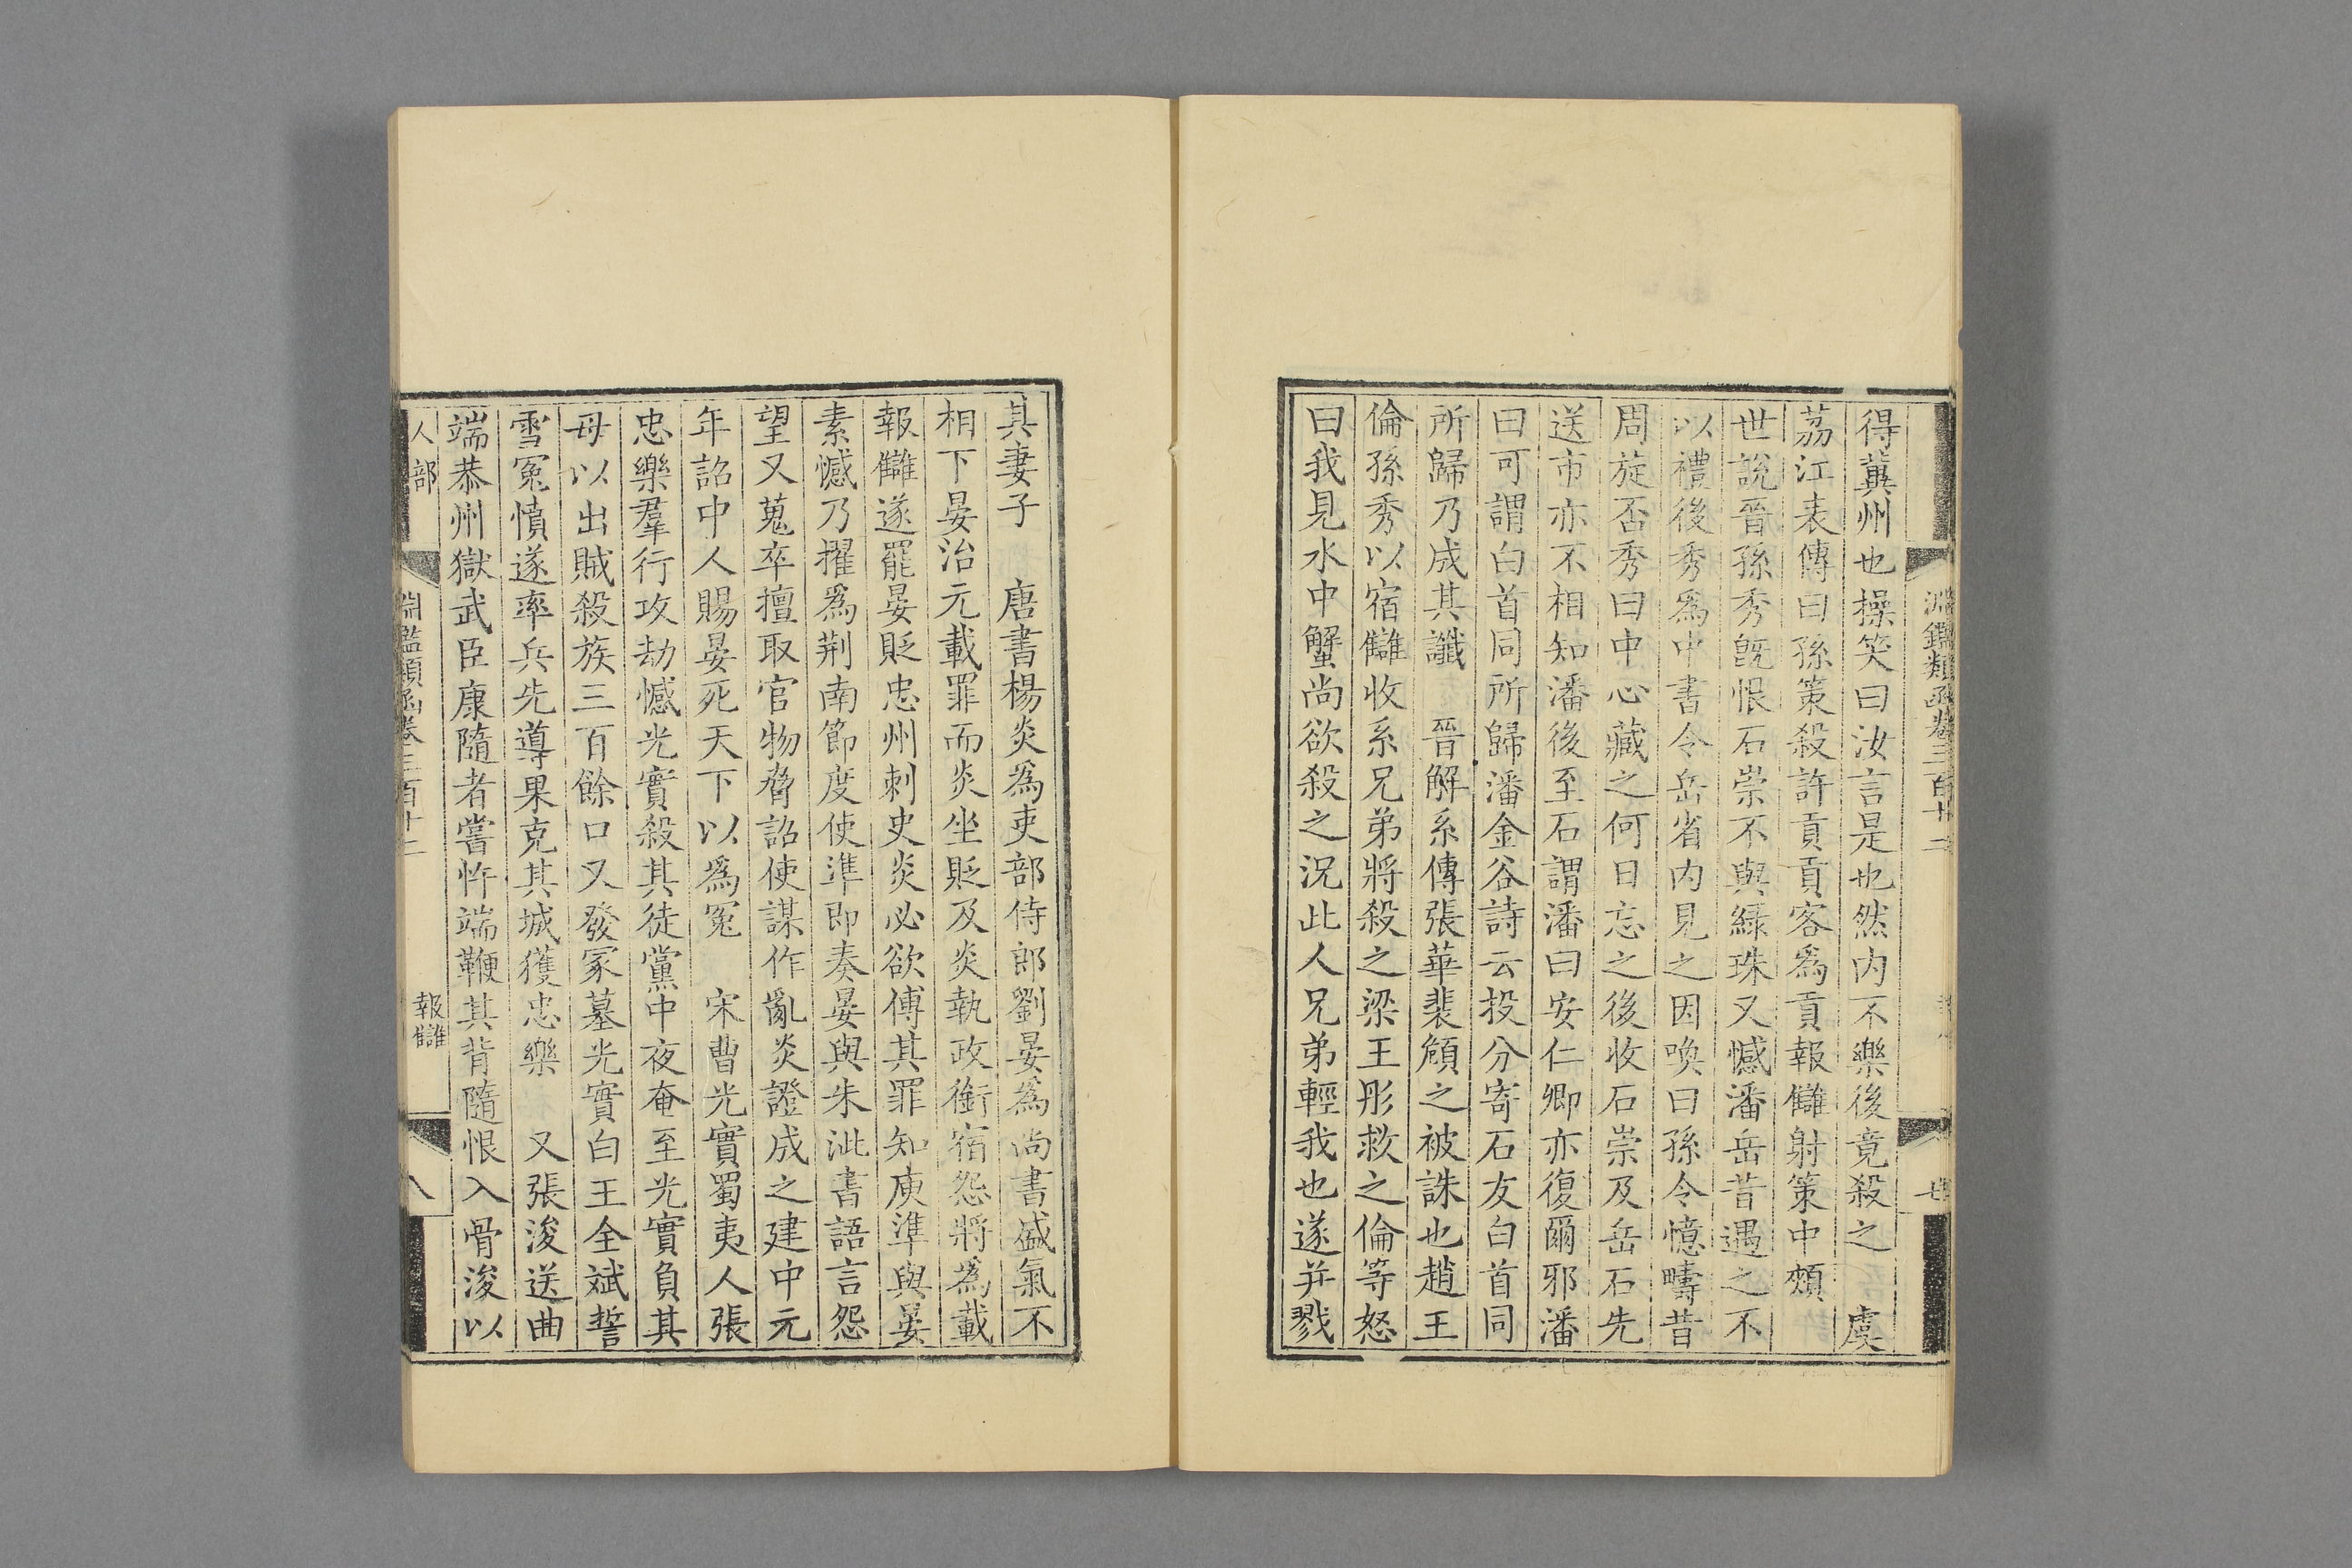 得冀州也操笑曰汝言是也然内不樂後竟殺之 虞
茘江表傳曰孫策殺許貢貢客爲貢報讎射策中頰
世說晉孫秀旣恨石崇不與綠珠又憾潘岳昔遇之不
以禮後秀爲中書令岳省内見之因喚曰孫令憶疇昔
周旋否秀曰中心藏之何日忘之後收石崇及岳石先
送市亦不相知潘後至石謂潘曰安仁卿亦復爾邪潘
曰可謂白首同所歸潘金谷詩云投分寄石友白首同
所歸乃成其讖 晉解系傳張華裴頠之被誅也趙王
倫孫秀以宿讎收系兄弟將殺之梁王彤救之倫等怒
曰我見水中蟹尚欲殺之況此人兄弟輕我也遂并戮
其妻子 唐書楊炎爲吏部侍郎劉晏爲尚書盛氣不
相下晏治元載罪而炎坐貶及炎執政銜宿怨將爲載
報讎遂罷晏貶忠州刺史炎必欲傅其罪知庾準與晏
素憾乃擢爲荆南節度使準即奏晏與朱泚書語言怨
望又蒐卒擅取官物脅詔使謀作亂炎證成之建中元
年詔中人賜晏死天下以爲冤 宋曹光實蜀夷人張
忠樂羣行攻劫憾光實殺其徒黨中夜奄至光實負其
母以出賊殺族三百餘口又發冢墓光實白王全斌誓
雪冤憤遂率兵先導果克其城獲忠樂 又張浚送曲
端恭州獄武臣康隨者嘗忤端鞭其背隨恨入骨浚以
淵鑑類函卷三百十二
七
人部
淵鑑類函卷三百十二
報讎
八